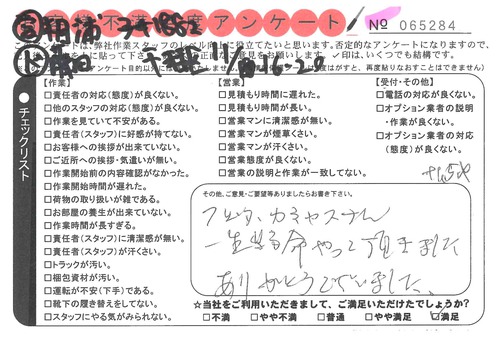 不満足度アンケート
№ 065284
チェックリスト
【作業】
□責任者の対応(態度)が良くない。
□他のスタッフの対応(態度)が良くない。
□作業を見ていて不安がある。
□責任者(スタッフ)に好感が持てない。
□お客様への挨拶が出来ていない。
□ご近所への挨拶・気遣いが無い。
□作業開始前の内容確認がなかった。
□作業開始時間が遅れた。
□荷物の取り扱いが雑である。
□お部屋の養生が出来ていない。
□作業時間が長すぎる。
□責任者(スタッフ)に清潔感が無い。
□責任者(スタッフ)が汗くさい。
□トラックが汚い。
□梱包資材が汚い。
□運転が不安(下手)である。
□靴下の履き替えをしてない。
□スタッフにやる気がみられない。
【営業】
□見積もり時間に遅れた。
□見積もり時間が長い。
□営業マンに清潔感が無い。
□営業マンが煙草くさい。
□営業マンが汗くさい。
□営業態度が良くない。
□営業の説明と作業が一致してない。
【受付・その他】
□電話の対応が良くない。
□オプション業者の説明
・作業が良くない。
□オプション業者の対応
(態度)が良くない。
その他、ご意見・ご要望等ありましたらお書き下さい。
一生懸命やって頂きました
ありがとうございました。
☆当社をご利用いただきまして、ご満足いただけたでしょうか?
□不満 □やや不満 □普通 □やや満足 ☑満足